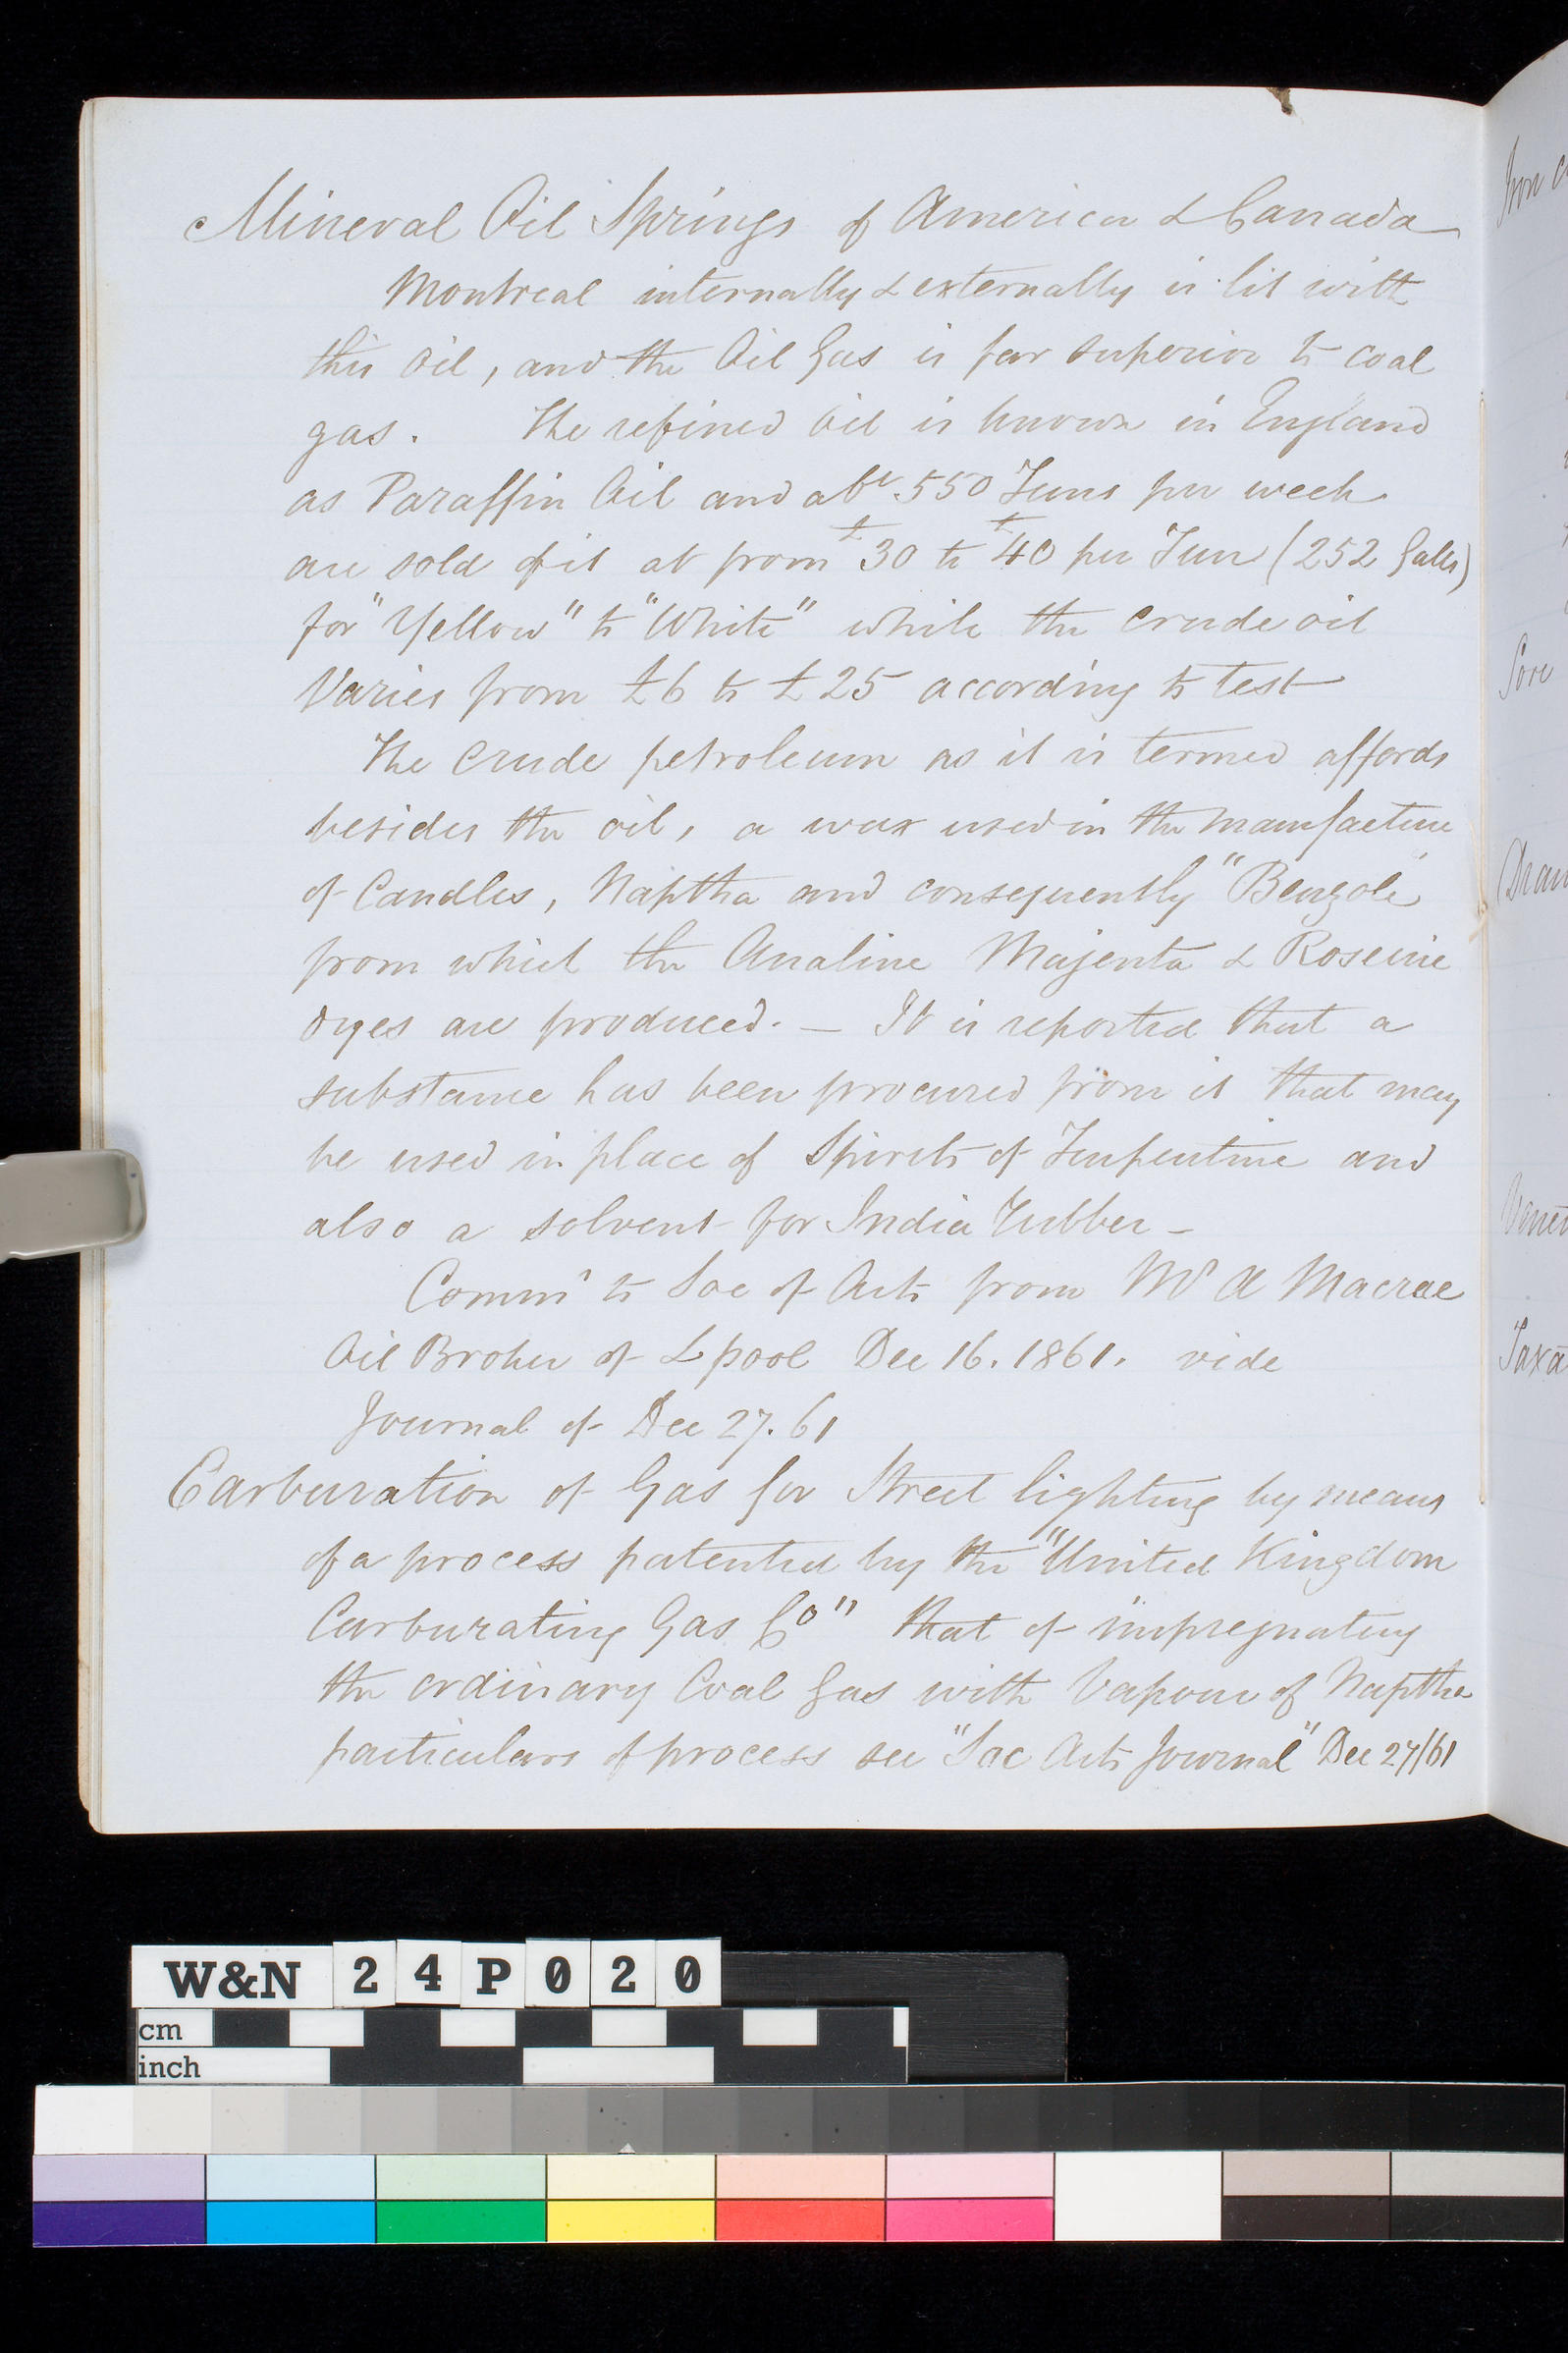 Mineral Oil Springs of America & Canada
Montreal internally & externally is lit with
this oil, and the Oil Gas is far superior to coal
gas. The refined Oil is known in England
as Paraffin Oil and abt 550 Tuns per week
are sold of it at from £30 to £40 per Tun (252 Galls)
for "Yellow" to "White" while the crude oil
Varies from £6 to £25 according to test
The Crude petroleum as it is termed affords
besides the oil, a wax used in the manufacture
of Candles, Naptha and consequently "Benzole"
from which the Analine Majenta & Roseine
dyes are produced. — It is reported that a
substance has been procured from it that may
be used in place of Spirits of Turpentine and
also a solvent for India Rubber —
Commd to Soc of Arts from Mr A Macrae
Oil Broker of Lpool Dec 16. 1861. vide
Journal of Dec 27. 61
Carburation of Gas for Street lighting by means
of a process patented by the "United Kingdom
Carburating Gas Co" that of impregnating
the ordinary Coal Gas with Vapour of Naptha
particulars of process see "Soc Arts Journal" Dec 27/61
Iron
Sore
W&N 24P020
cm
inch